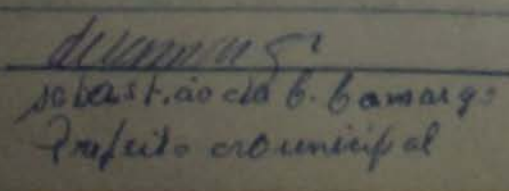 Sebastião da C. Camargo
Prefeito Municipal